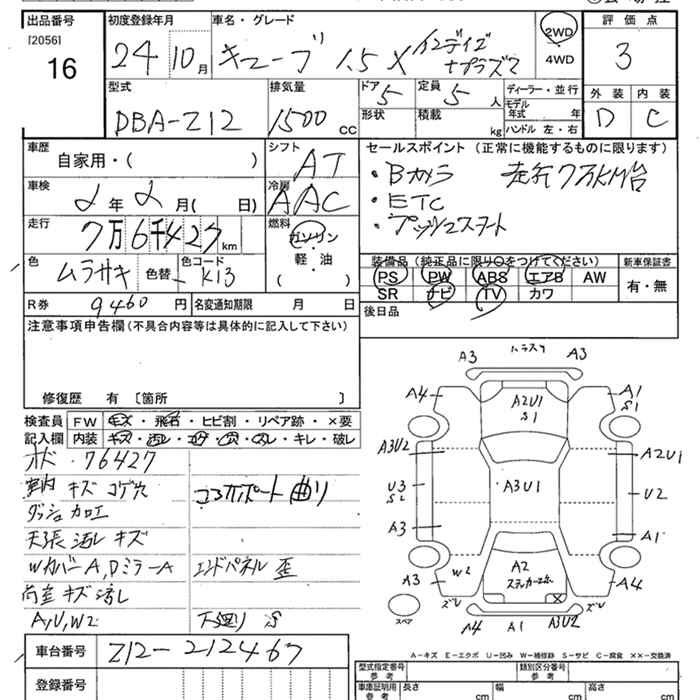 出品番号
[2056]
16
初度登録年月
24 10 月
車名・グレード
キューブ 1.5 X
2WD
4WD
評価点
3
型式
DBA-Z12
排気量
1500 CC
ドア
5
定員
5 人
形状
積載 kg
ディーラー・並行
モデル年式 年
ハンドル 左・右
外装
D
内装
C
車歴
自家用・( )
シフト
AT
車検
2年 2月( 日)
冷房
AAC
走行
7万6千427 km
燃料
ガソリン
軽・油
( )
色
ムラサキ
色替
色コード
K13
R券 9460 円
名変通知期限 月 日
セールスポイント(正常に機能するものに限ります)
・Bカメラ 走行7万KM台
・ETC
・プッシュスタート
装備品(純正品に限り○をつけてください)
PS PW ABS エアB AW
SR ナビ TV カワ
新車保証書
有・無
後日品
注意事項申告欄(不具合内容等は具体的に記入して下さい)
修復歴 有 〔箇所 〕
検査員記入欄
FW キズ・飛石・ヒビ割・リペア跡・×要
内装 キズ・汚レ・コゲ・穴・スレ・キレ・破レ
メーター 76427
室内 キズ コゲ穴
ダッシュ 加工
天張 汚レ キズ
コアサポート 曲り
WカバーA, DミラーA
エンドパネル 歪
荷室 キズ 汚レ
A, U, W2
下廻り S
A3 A3
A4 A2U1 S1 A1 S1
A3U2 A2U1
U3 S2 A3U1 U2
A3 A1
A3 W2 A2 A4
ズレ ズレ
スペア
A4 A1 A3U2
A-キズ E-エクボ U-凹み W-補修跡 S-サビ C-腐食 XX-交換済
車台番号
Z12-212467
登録番号
型式指定番号 参考
類別区分番号 参考
車庫証明用 参考
長さ cm
幅 cm
高さ cm